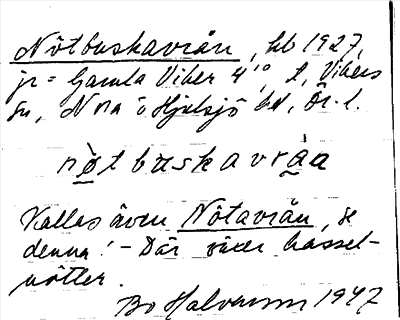 Nötbuskavrån, hb 1927,
jr = Gamla Viker 4¹⁰ t, Vikers
sn, Nora o Hjulsjö bd, Ör. l.
nø̀tbuskavråa
Kallas även Nötavrån, se
denna! - Där växer hassel-
nötter.
Bo Halvarsson 1947